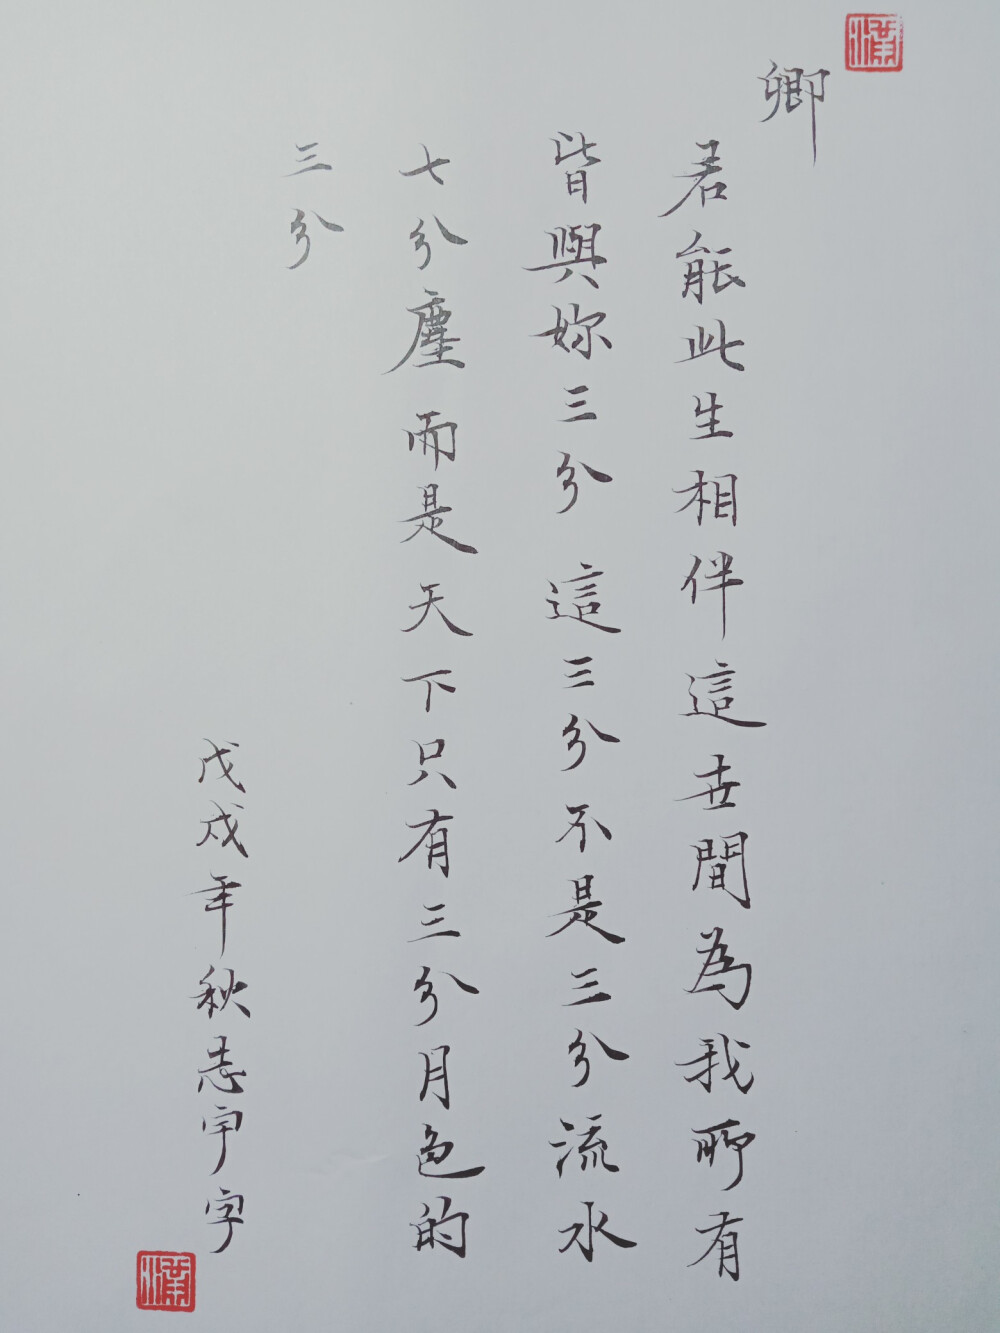 卿
君能此生相伴這世間為我所有
皆與妳三分 這三分不是三分流水
七分塵 而是天下只有三分月色的
三分
戊戌年秋志宇字